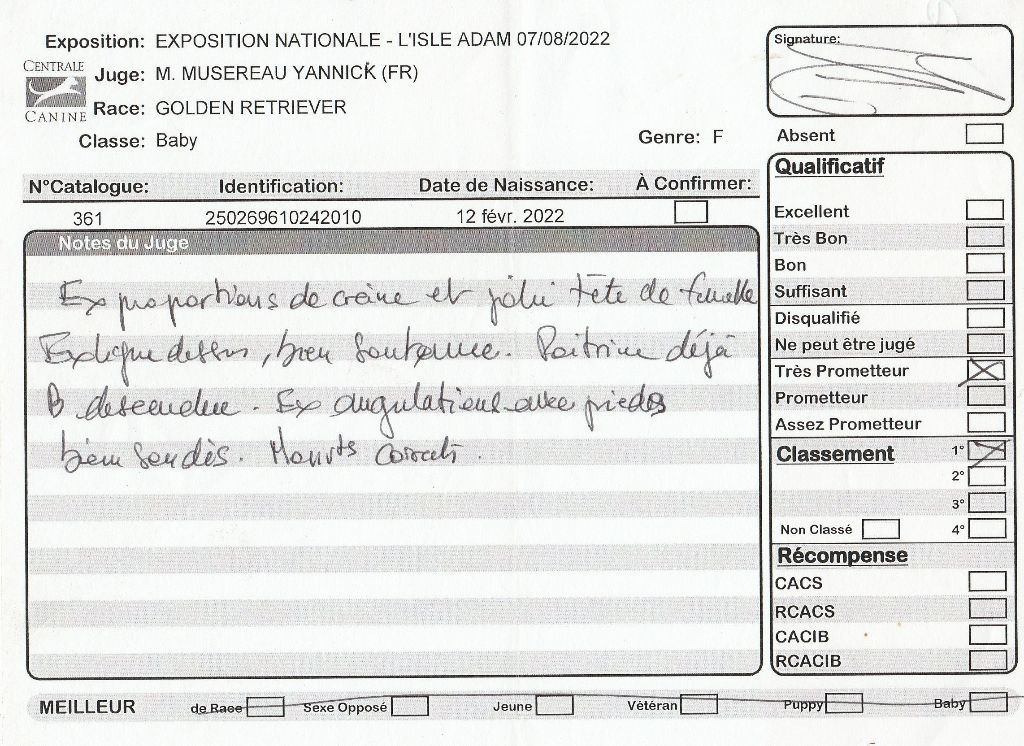 Exposition: EXPOSITION NATIONALE - L'ISLE ADAM 07/08/2022
CENTRALE
CANINE
Juge: M. MUSEREAU YANNICK (FR)
Race: GOLDEN RETRIEVER
Classe: Baby
Genre: F
Signature:
Absent
N°Catalogue: Identification: Date de Naissance: À Confirmer:
361 250269610242010 12 févr. 2022
Notes du Juge
Ex proportions de crâne et jolie tête de femelle
Ex ligne dessus, bien soutenue. Poitrine déjà
B descendue. Ex angulations avec pieds
bien serrés. Mouvts corrects.
Qualificatif
Excellent
Très Bon
Bon
Suffisant
Disqualifié
Ne peut être jugé
Très Prometteur
Prometteur
Assez Prometteur
Classement 1°
2°
3°
Non Classé 4°
Récompense
CACS
RCACS
CACIB
RCACIB
MEILLEUR de Race Sexe Opposé Jeune Vétéran Puppy Baby